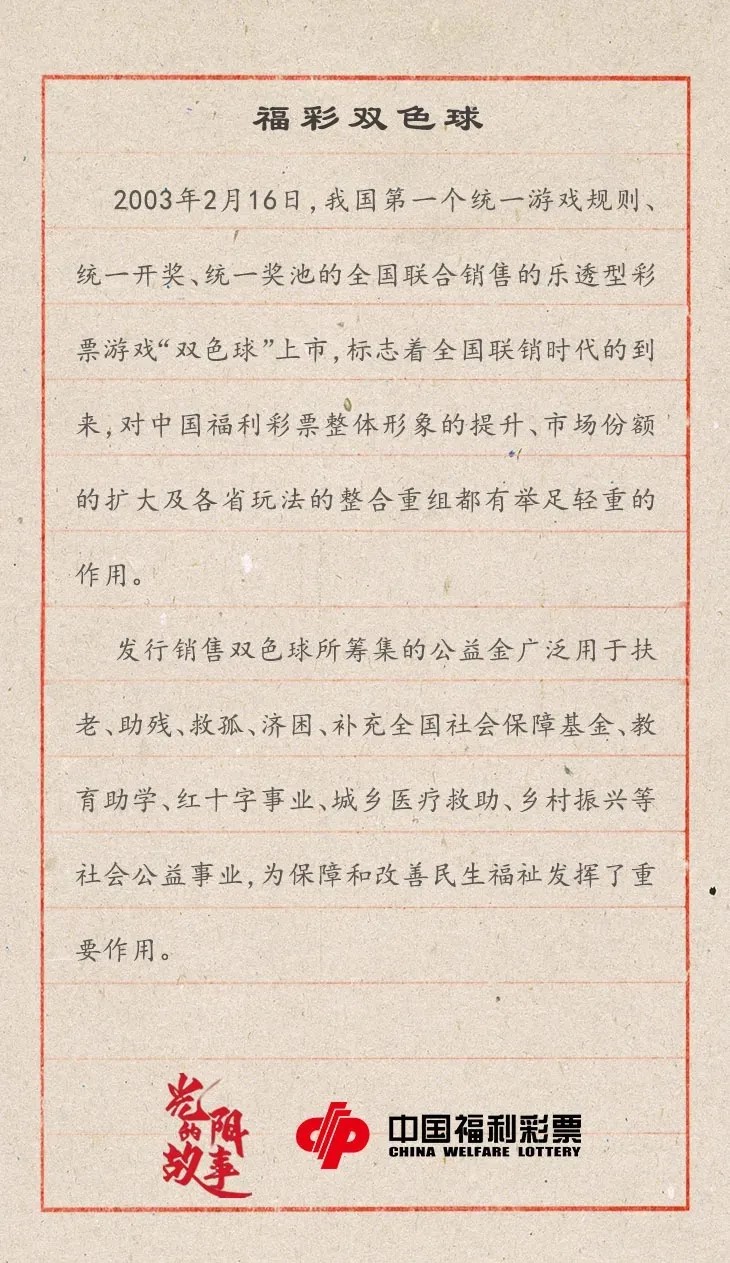 福彩双色球
2003年2月16日,我国第一个统一游戏规则、
统一开奖、统一奖池的全国联合销售的乐透型彩
票游戏“双色球”上市,标志着全国联销时代的到
来,对中国福利彩票整体形象的提升、市场份额
的扩大及各省玩法的整合重组都有举足轻重的
作用。
发行销售双色球所筹集的公益金广泛用于扶
老、助残、救孤、济困、补充全国社会保障基金、教
育助学、红十字事业、城乡医疗救助、乡村振兴等
社会公益事业,为保障和改善民生福祉发挥了重
要作用。
光阴的故事
中国福利彩票
CHINA WELFARE LOTTERY